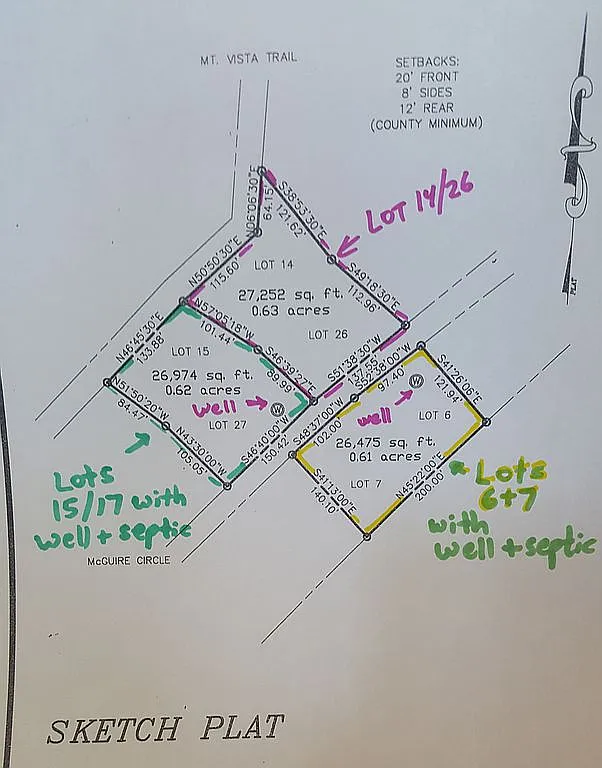 MT. VISTA TRAIL
SETBACKS:
20' FRONT
8' SIDES
12' REAR
(COUNTY MINIMUM)
PLAT
N06°06'30"E
64.15
S38°53'30"E
121.62
LOT 14/26
N50°50'30"E
115.60
LOT 14
S49°18'30"E
112.96
27,252 sq. ft.
0.63 acres
LOT 26
N46°45'30"E
133.88
N57°05'18"W
101.44
LOT 15
S46°39'27"E
89.99
S51°38'30"W
26,974 sq. ft.
0.62 acres
well
W
LOT 27
N51°50'20"W
84.47
N43°30'00"W
105.05
S46°40'00"W
150.42
S48°37'00"W
102.00
S52°38'00"W
97.40
S41°26'06"E
121.94
W
well
LOT 6
26,475 sq. ft.
0.61 acres
LOT 7
S41°13'00"E
140.10
N45°22'00"E
200.00
Lots
15/17 with
well + septic
Lots
6+7
with
well + septic
McGUIRE CIRCLE
SKETCH PLAT